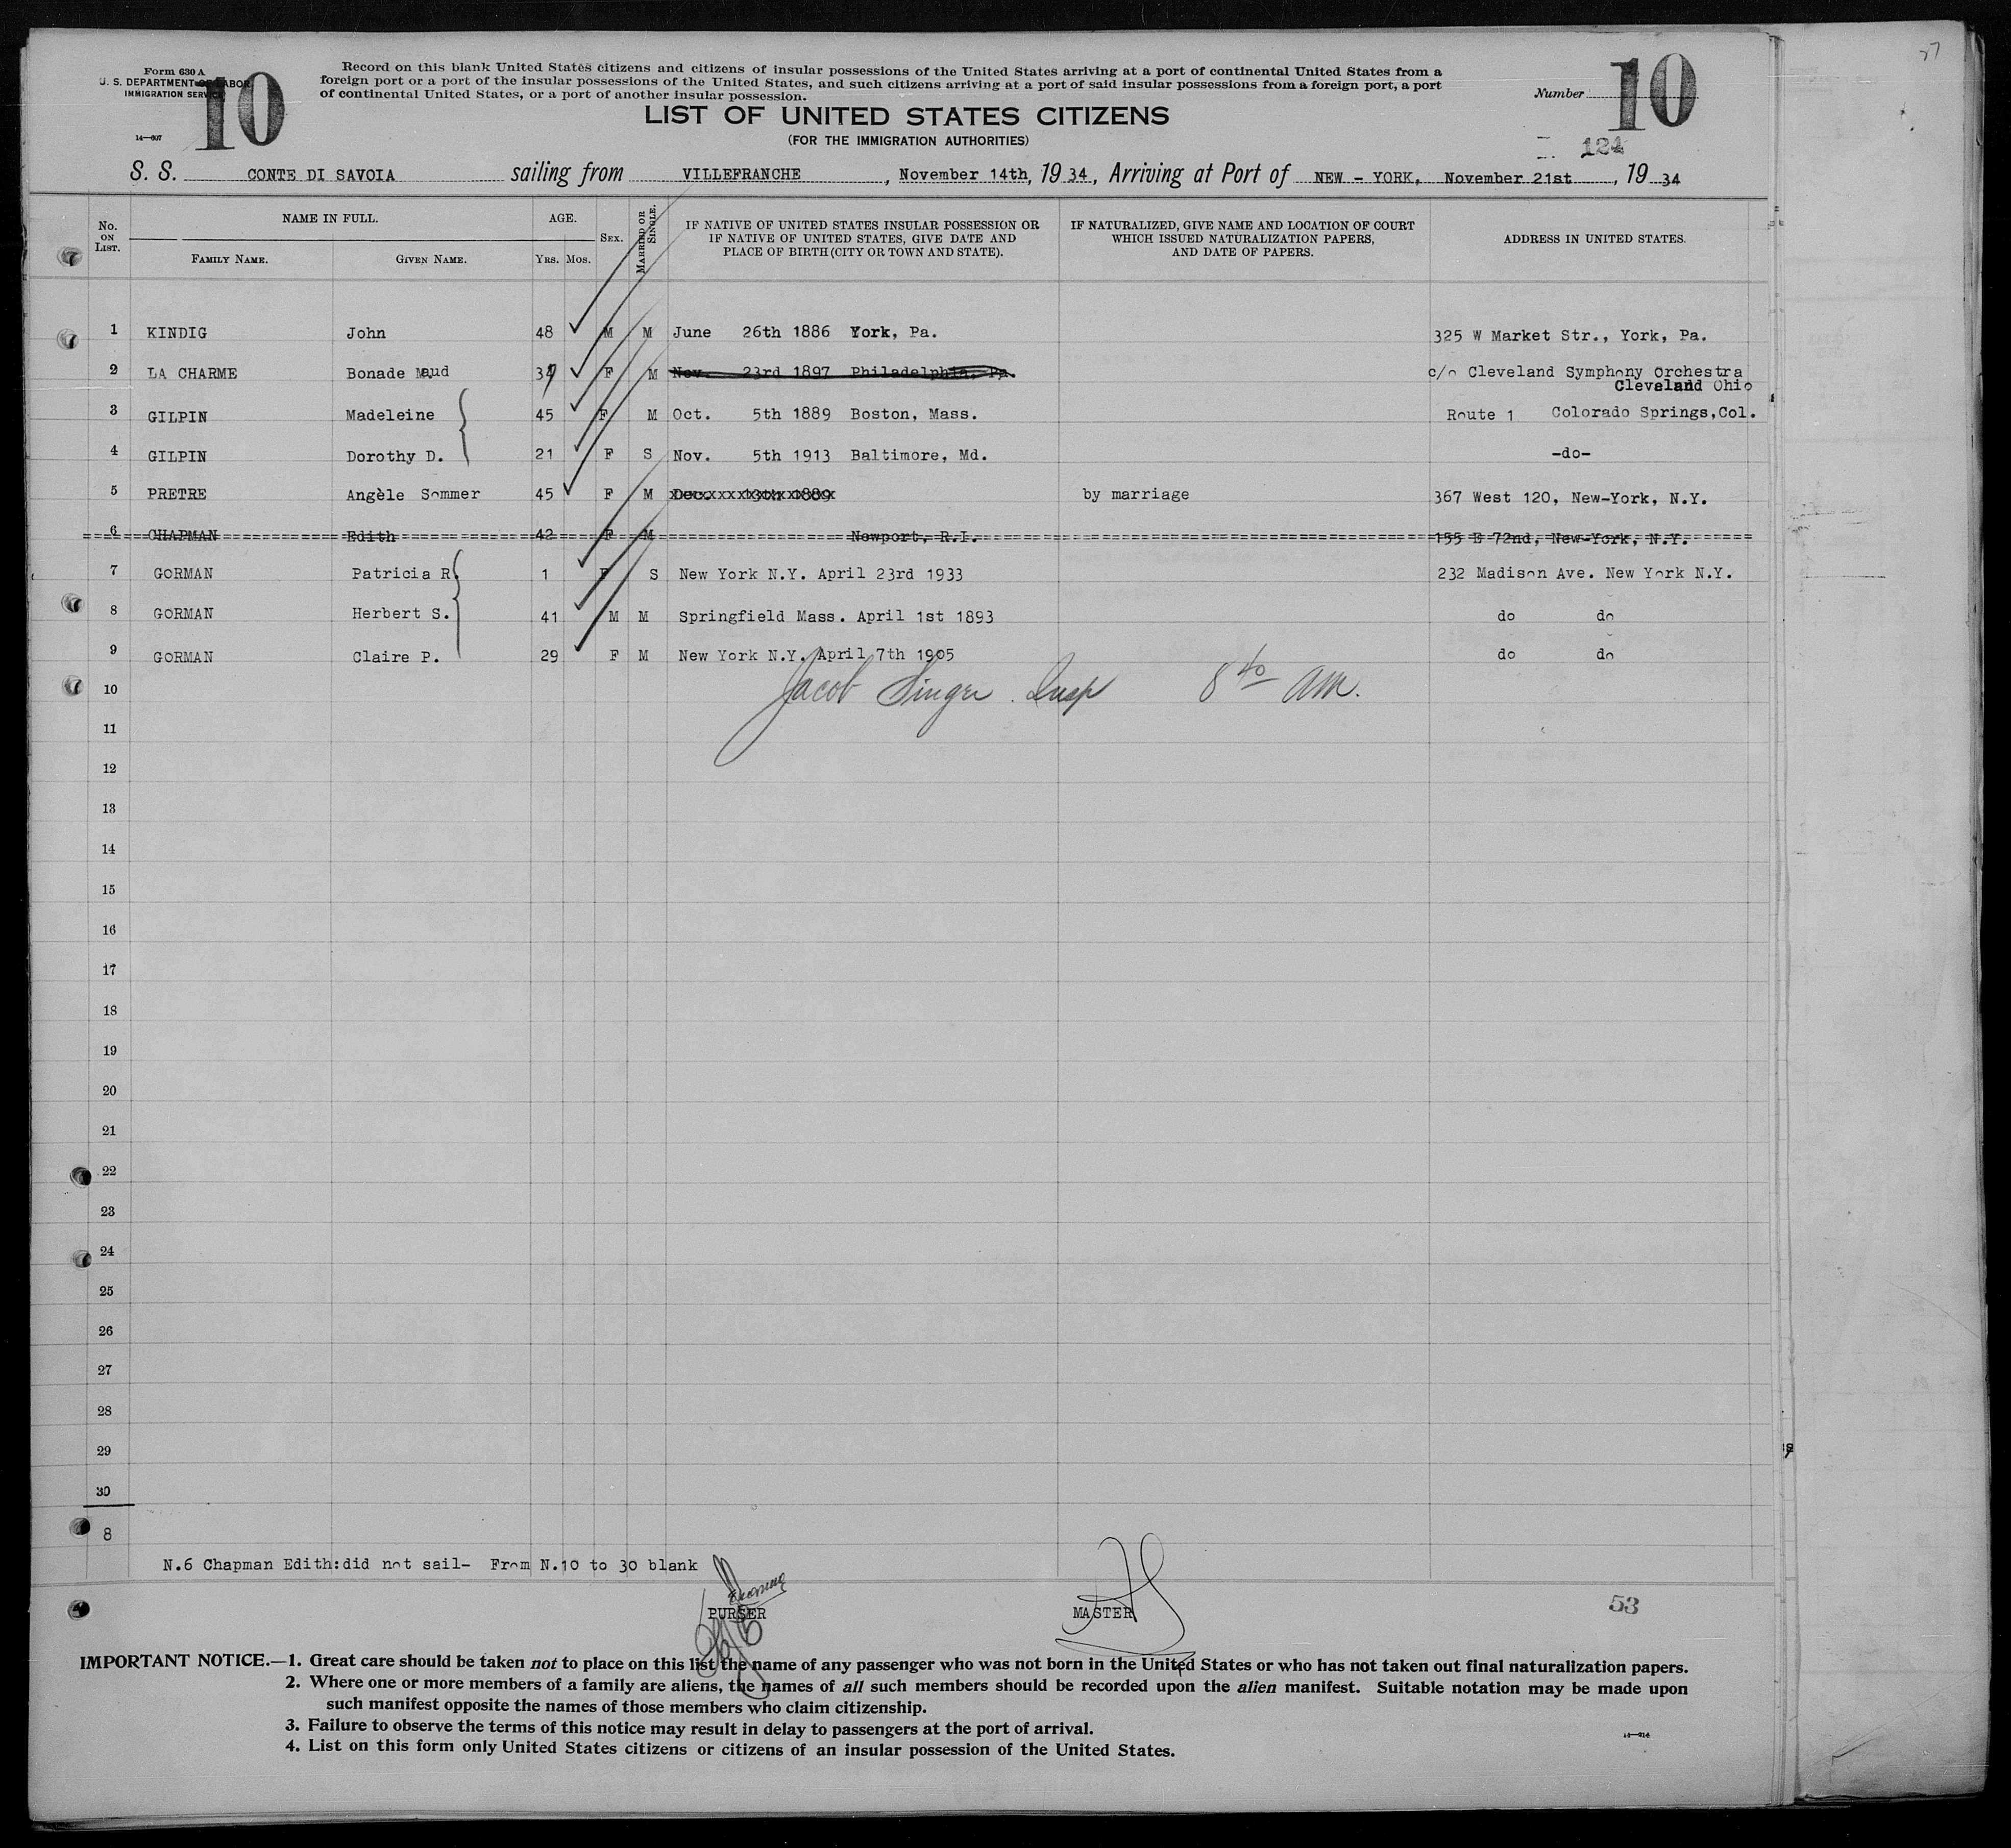 27
Form 630 A
U. S. DEPARTMENT OF LABOR
IMMIGRATION SERVICE
10
14—607
Record on this blank United States citizens and citizens of insular possessions of the United States arriving at a port of continental United States from a
foreign port or a port of the insular possessions of the United States, and such citizens arriving at a port of said insular possessions from a foreign port, a port
of continental United States, or a port of another insular possession.
Number 10
LIST OF UNITED STATES CITIZENS
(FOR THE IMMIGRATION AUTHORITIES)
124
S. S. CONTE DI SAVOIA sailing from VILLEFRANCHE, November 14th, 1934, Arriving at Port of NEW - YORK, November 21st, 1934
No. ON LIST. NAME IN FULL. AGE. SEX. MARRIED OR SINGLE. IF NATIVE OF UNITED STATES INSULAR POSSESSION OR IF NATIVE OF UNITED STATES, GIVE DATE AND PLACE OF BIRTH (CITY OR TOWN AND STATE). IF NATURALIZED, GIVE NAME AND LOCATION OF COURT WHICH ISSUED NATURALIZATION PAPERS, AND DATE OF PAPERS. ADDRESS IN UNITED STATES.
FAMILY NAME. GIVEN NAME. YRS. MOS.
1 KINDIG John 48 M M June 26th 1886 York, Pa. 325 W Market Str., York, Pa.
2 LA CHARME Bonade Maud 37 F M Nov. 23rd 1897 Philadelphia, Pa. c/o Cleveland Symphony Orchestra
Cleveland Ohio
3 GILPIN Madeleine 45 F M Oct. 5th 1889 Boston, Mass. Route 1 Colorado Springs,Col.
4 GILPIN Dorothy D. 21 F S Nov. 5th 1913 Baltimore, Md. -do-
5 PRETRE Angèle Sommer 45 F M Dec. 13th 1889 by marriage 367 West 120, New-York, N.Y.
6 CHAPMAN Edith 42 F M Newport, R.I. 155 E 72nd, New-York, N.Y.
7 GORMAN Patricia R. 1 F S New York N.Y. April 23rd 1933 232 Madison Ave. New York N.Y.
8 GORMAN Herbert S. 41 M M Springfield Mass. April 1st 1893 do do
9 GORMAN Claire P. 29 F M New York N.Y. April 7th 1905 do do
10 Jacob Singer Insp 8 40 AM.
11
12
13
14
15
16
17
18
19
20
21
22
23
24
25
26
27
28
29
30
8
N.6 Chapman Edith:did not sail- From N.10 to 30 blank
PURSER MASTER 53
IMPORTANT NOTICE.—1. Great care should be taken not to place on this list the name of any passenger who was not born in the United States or who has not taken out final naturalization papers.
2. Where one or more members of a family are aliens, the names of all such members should be recorded upon the alien manifest. Suitable notation may be made upon
such manifest opposite the names of those members who claim citizenship.
3. Failure to observe the terms of this notice may result in delay to passengers at the port of arrival.
4. List on this form only United States citizens or citizens of an insular possession of the United States.